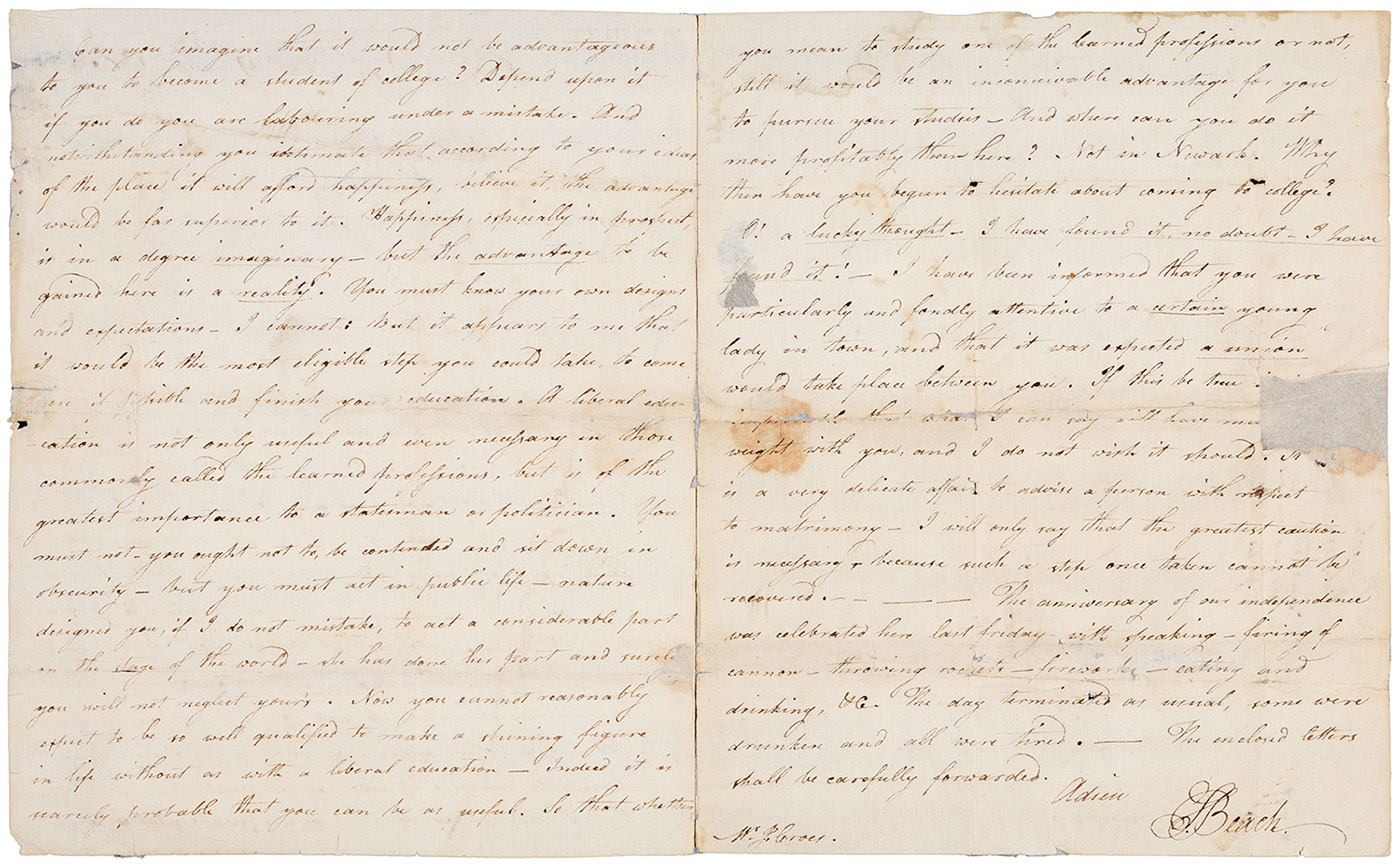 Can you imagine that it would not be advantageous
to you to become a student of college? Depend upon it
if you do you are labouring under a mistake. And
notwithstanding you intimate that according to your ideas
of the place it will afford happiness, believe it, the advantage
would be far superior to it. Happiness, especially in prospect,
is in a degree imaginary – but the advantage to be
gained here is a reality. You must know your own designs
and expectations – I cannot: But it appears to me that
it would be the most eligible step you could take, to come
and finish your education. A liberal edu-
-cation is not only useful and even necessary in those
commonly called the learned professions, but is of the
greatest importance to a statesman or politician. You
must not – you ought not to, be contended and sit down in
obscurity – but you must act in public life – nature
designed you, if I do not mistake, to act a considerable part
on the stage of the world – she has done her part and surely
you will not neglect yours. Now you cannot reasonably
expect to be so well qualified to make a shining figure
in life without as with a liberal education – Indeed it is
scarcely probable that you can be as useful. So that whether
you mean to study one of the learned professions or not,
still it would be an inconceivable advantage for you
to pursue your studies – And where can you do it
more profitably than here? Not in Newark. Why
then have you begun to hesitate about coming to college?
O! a lucky thought – I have found it, no doubt – I have
found it! – I have been informed that you were
particularly and fondly attentive to a certain young
lady in town, and that it was expected a union
would take place between you. If this be true
that what I can say will have
weight with you, and I do not wish it should. It
is a very delicate affair to advise a person with respect
to matrimony – I will only say that the greatest caution
is necessary, because such a step once taken cannot be
recovered. – – —— The anniversary of our independence
was celebrated here last friday – with speaking – firing of
cannon – throwing rockets – fireworks – eating and
drinking, &c. The day terminated as usual, some were
drunken and all were tired. —— The enclosed letters
shall be carefully forwarded.
Adieu
Beach.
Mr. J. Croes.